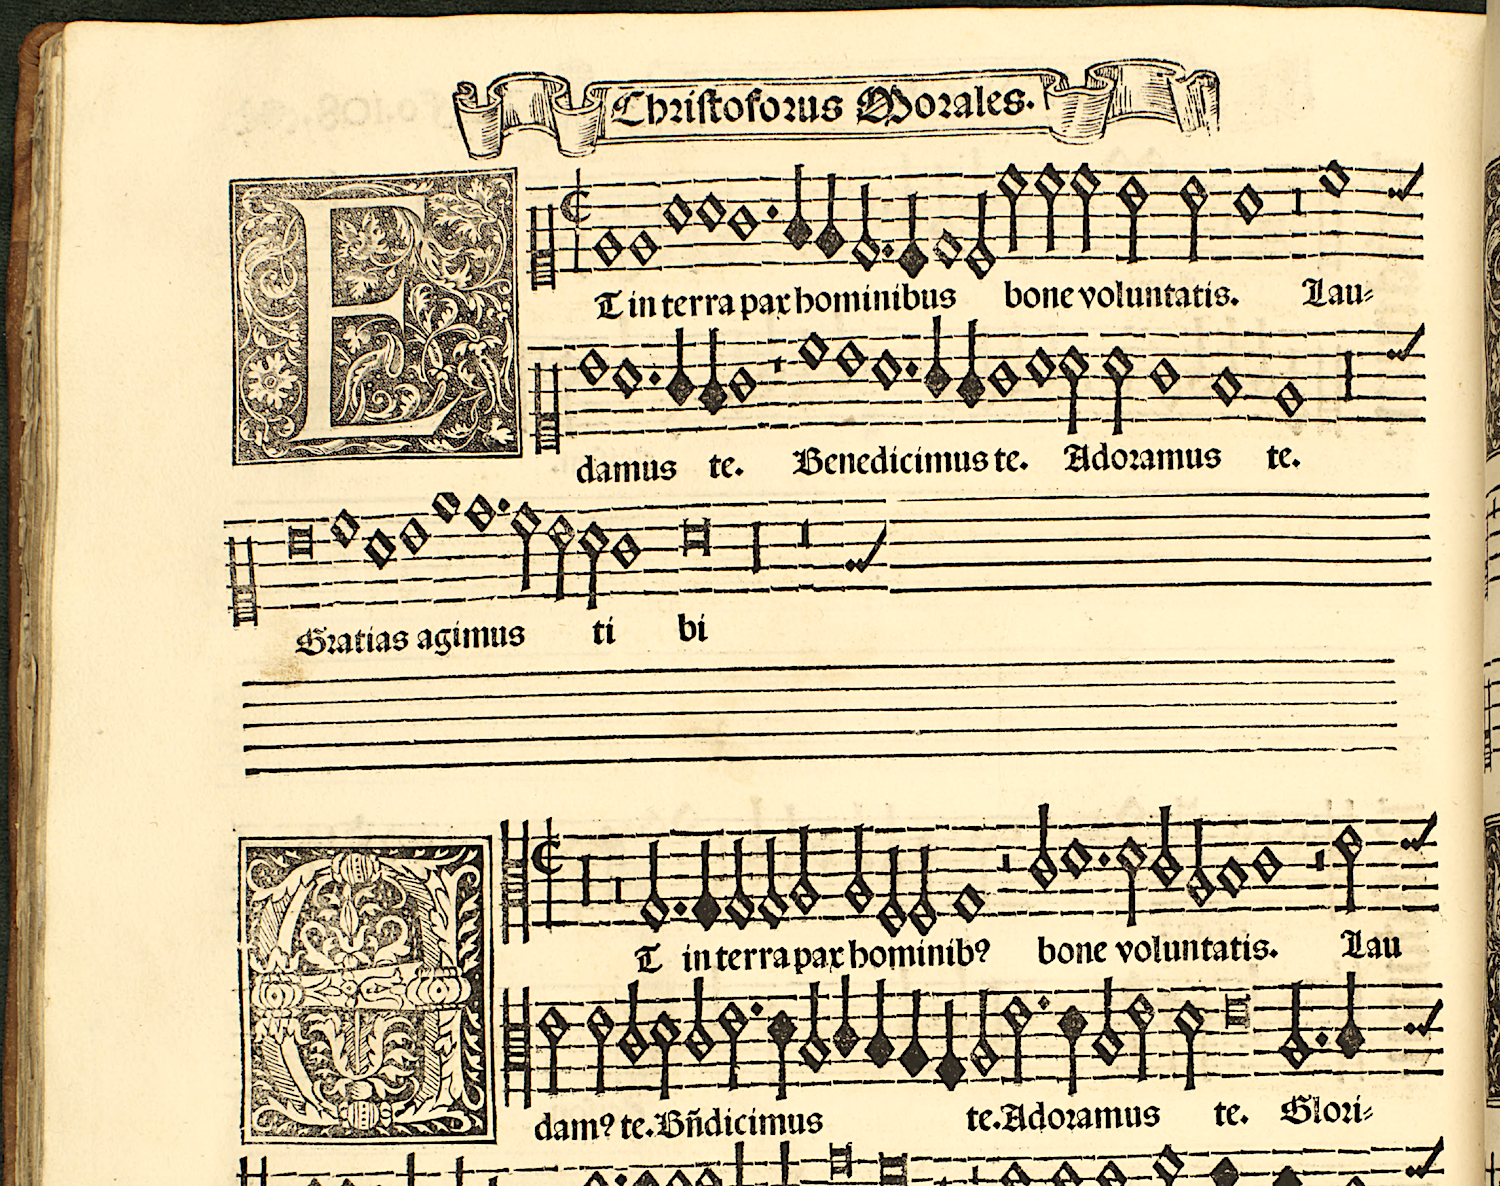 Christoforus Morales.
ET in terra pax hominibus bone voluntatis. Lau-
damus te. Benedicimus te. Adoramus te.
Gratias agimus ti bi
ET in terra pax hominib9 bone voluntatis. Lau
dam9 te. Bñdicimus te. Adoramus te. Glori-